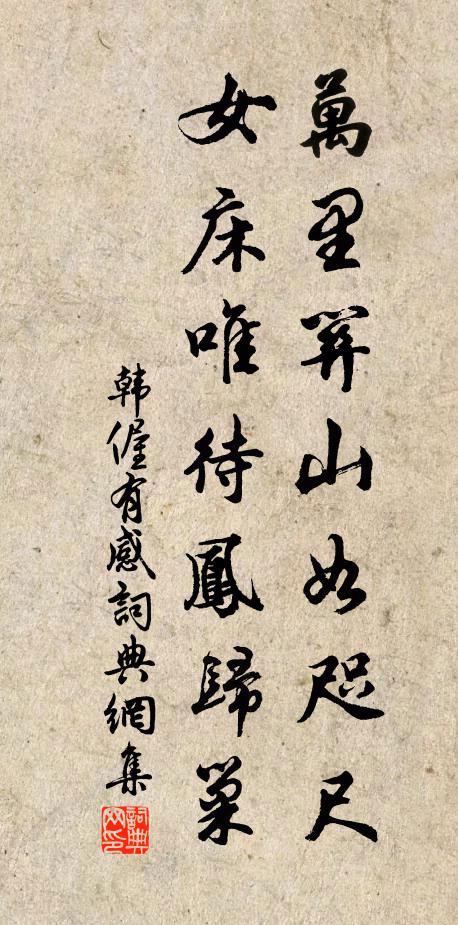 萬里關山如咫尺
女床唯待鳳歸巢
韓偓有感詞典網集
詞典網印